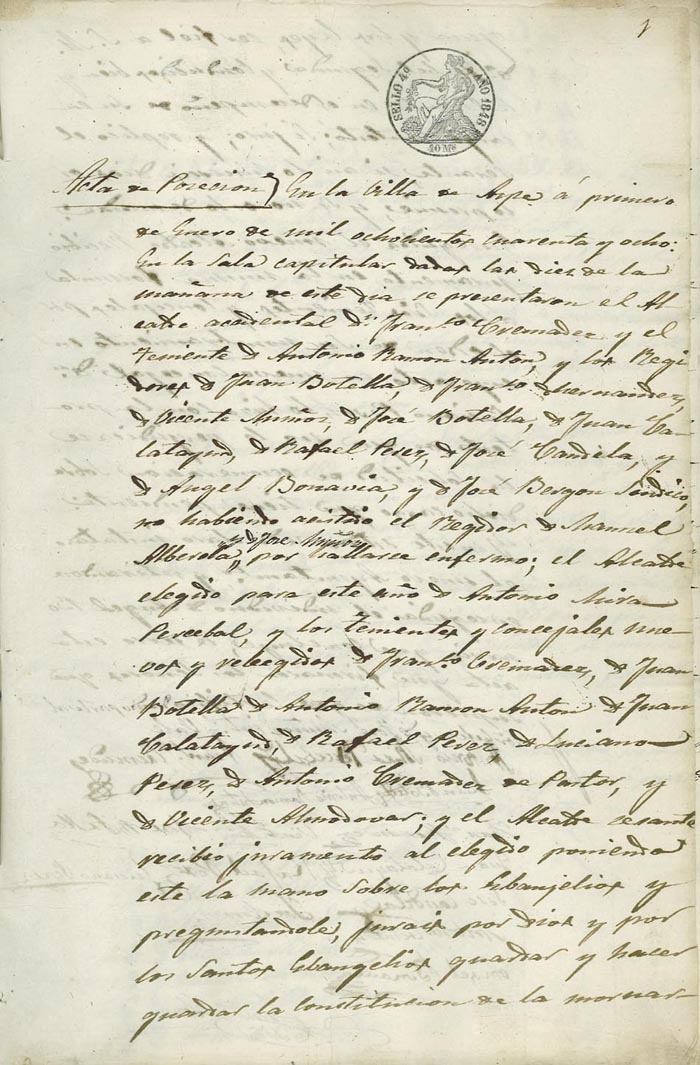 1
SELLO 4º AÑO 1848
40 Ms
Acta de Posecion) En la Villa de Aspe á primero
de Enero de mil ochocientos cuarenta y ocho:
En la Sala capitular dadas las diez de la
mañana de este dia se presentaron el Al
calde accidental Dn. Franco. Cremades y el
Teniente D Antonio Ramon Anton, y los Regi
dores D Juan Botella, D Franco. Hernandez,
D Vicente Muños, D José Botella, D Juan Ca
latayud, D Rafael Perez, D José Candela, y
D Angel Bonavia, y D José Bergon Sindico,
no habiendo asistido el Regidor D Manuel
y D Jose Muñoz
Alberola, por hallarse enfermo; el Alcalde
elegido para este año D Antonio Mira
Percebal, y los Tenientes y concejales nue
vos y relegidos D Franco. Cremades, D Juan
Botella D Antonio Ramon Anton D Juan
Calatayud, D Rafael Perez, D Luciano
Perez, D Antonio Cremades de Pastor, y
D Vicente Almodovar; y el Alcalde cesante
recibio juramento al elegido poniendo
este la mano sobre los Ebanjelios y
preguntandole, jurais por Dios y por
los Santos Ebangelios guardar y hacer
guardar la Constitucion de la monar-